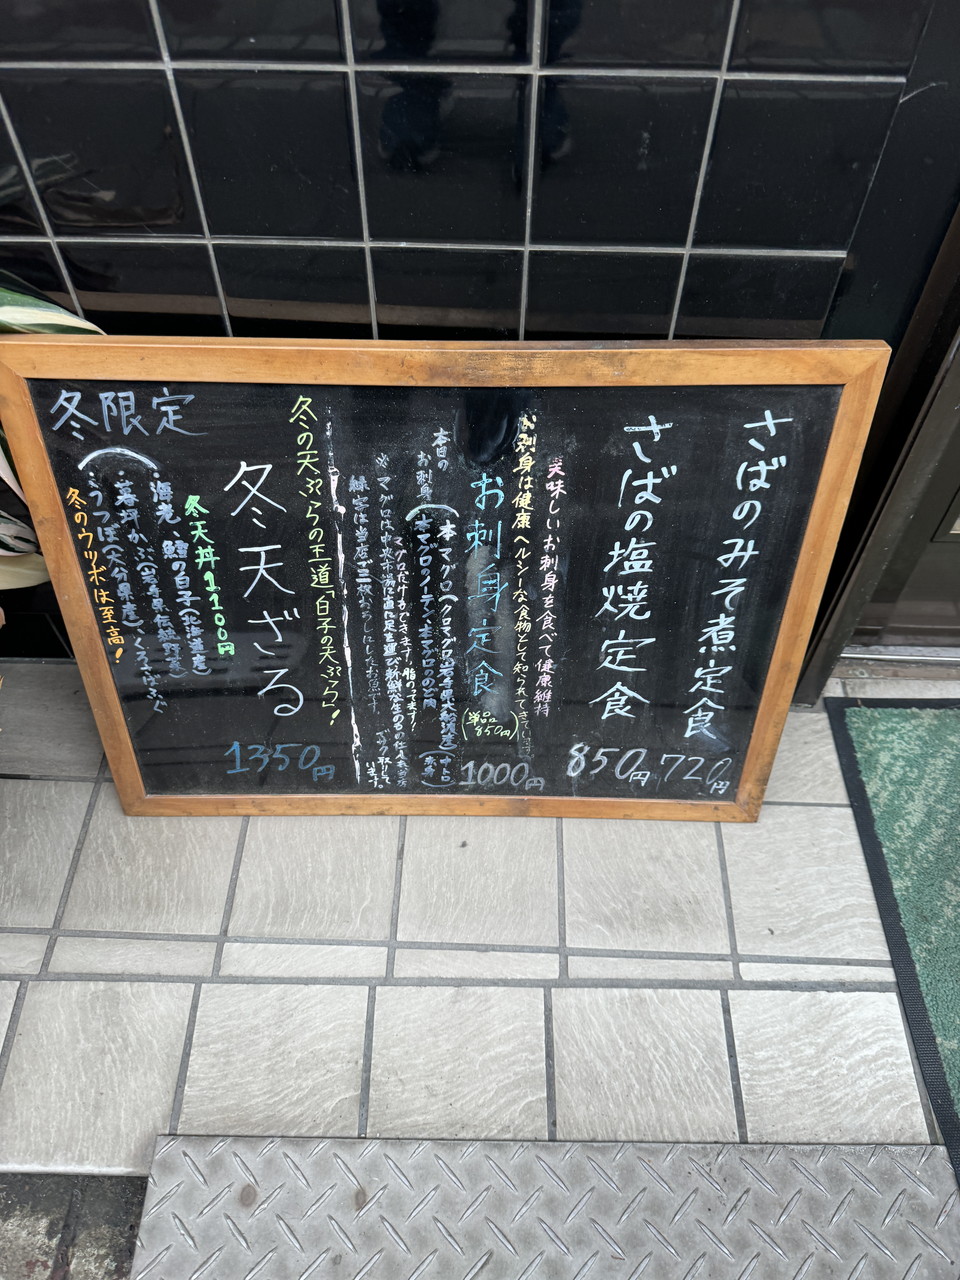 さばのみそ煮定食
720円
さばの塩焼定食
850円
美味しいお刺身を食べて健康維持
お刺身は健康ヘルシーな食物として知られてきて
お刺身定食
(単品850円)
1000円
本日のお刺身
(本マグロ(クロマグロ岩手県大船渡産)(中トロ
本マグロのノーテン、本マグロのど肉
(赤身)
マグロだけができます!脂のってます!
※マグロは中央市場に直に足を運び新鮮な生のもの仕入れ
当店で三枚おろしにしたお魚です
います。
冬の天ぷらの王道「白子の天ぷら」!
冬天ざる
1350円
冬天丼1100円
冬限定
海老、鱈の白子(北海道産)
暮坪かぶ(岩手県伝統野菜)
うつぼ(大分県産)
冬のウツボは至高!